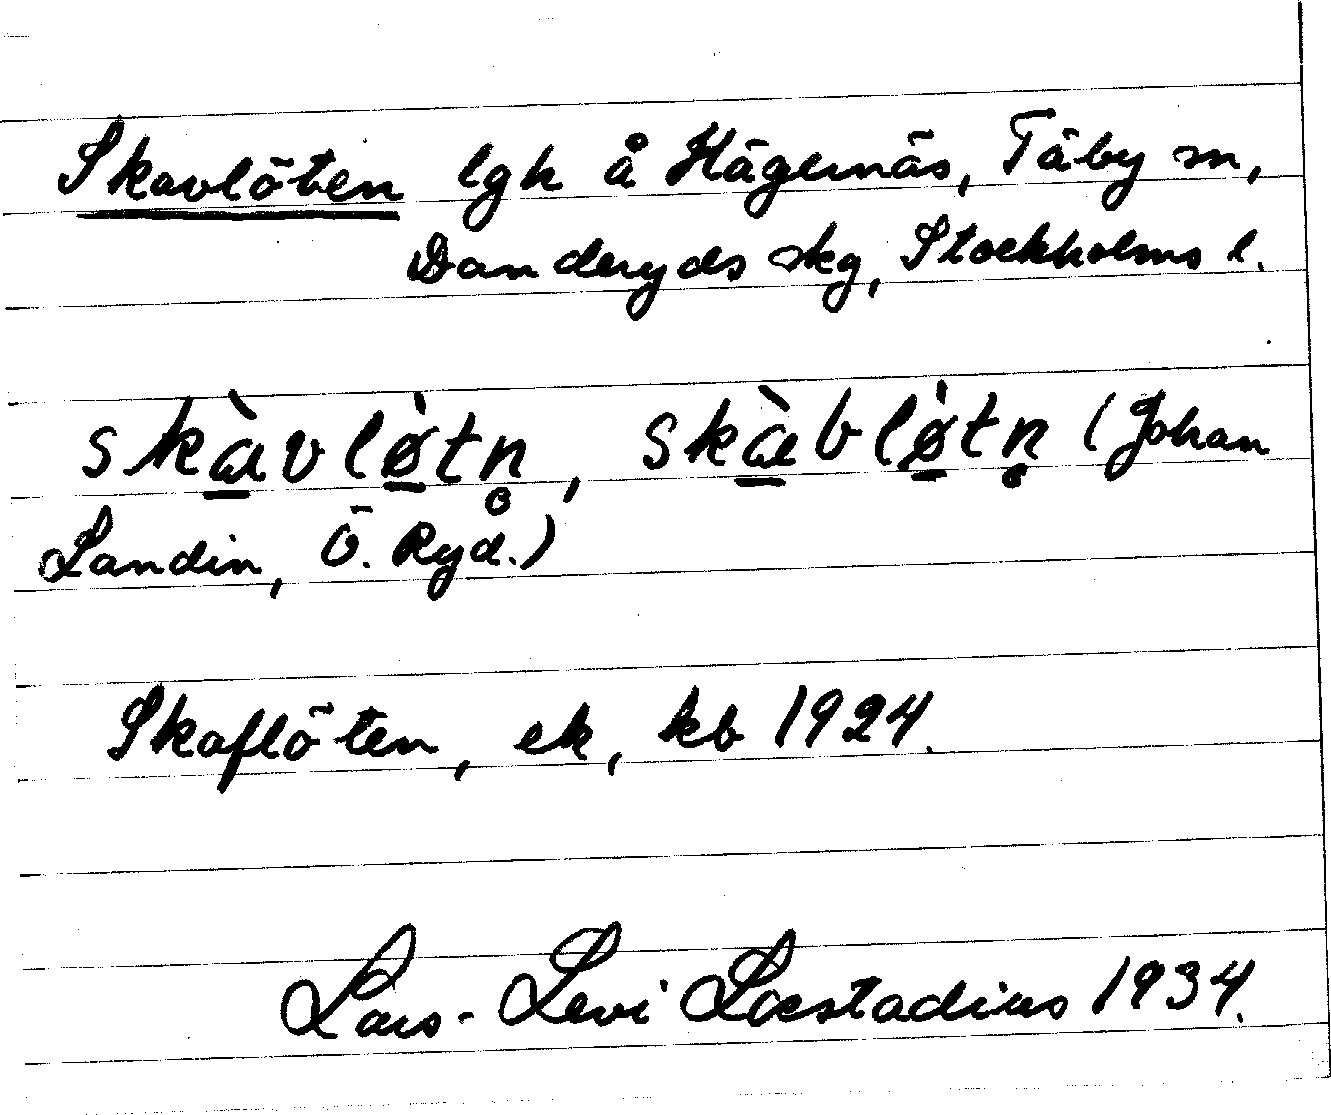 Skavlöten lgh å Hägernäs, Täby sn,
Danderyds skg, Stockholms l.
skàvlø̀tn̥, skæ̀blø̀tn̥ (Johan
Landin, Ö. Ryd.)
Skaflöten, ek, kb 1924.
Lars-Levi Læstadius 1934.